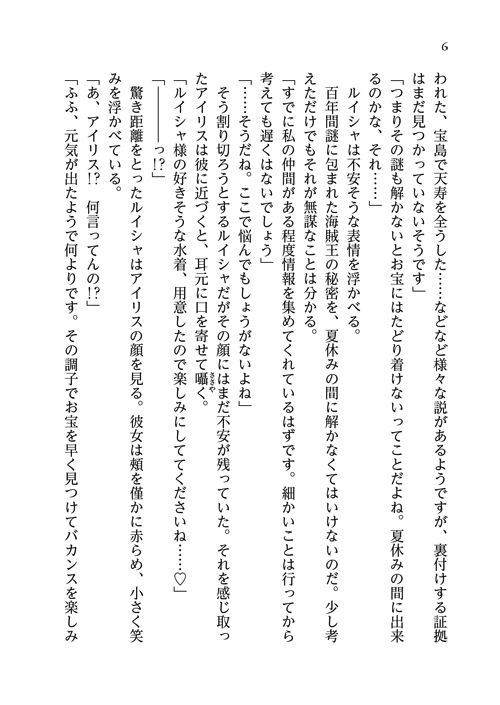 6
われた、宝島で天寿を全うした……などなど様々な説があるようですが、裏付けする証拠
はまだ見つかっていないそうです」
「つまりその謎も解かないとお宝にはたどり着けないってことだよね。夏休みの間に出来
るのかな、それ……」
ルイシャは不安そうな表情を浮かべる。
百年間謎に包まれた海賊王の秘密を、夏休みの間に解かなくてはいけないのだ。少し考
えただけでもそれが無謀なことは分かる。
「すでに私の仲間がある程度情報を集めてくれているはずです。細かいことは行ってから
考えても遅くはないでしょう」
「……そうだね。ここで悩んでもしょうがないよね」
そう割り切ろうとするルイシャだがその顔にはまだ不安が残っていた。それを感じ取っ
たアイリスは彼に近づくと、耳元に口を寄せて囁く。
ささや
「ルイシャ様の好きそうな水着、用意したので楽しみにしててくださいね……♡」
「―――っ!?」
驚き距離をとったルイシャはアイリスの顔を見る。彼女は頬を僅かに赤らめ、小さく笑
みを浮かべている。
「あ、アイリス!? 何言ってんの!?」
「ふふ、元気が出たようで何よりです。その調子でお宝を早く見つけてバカンスを楽しみ